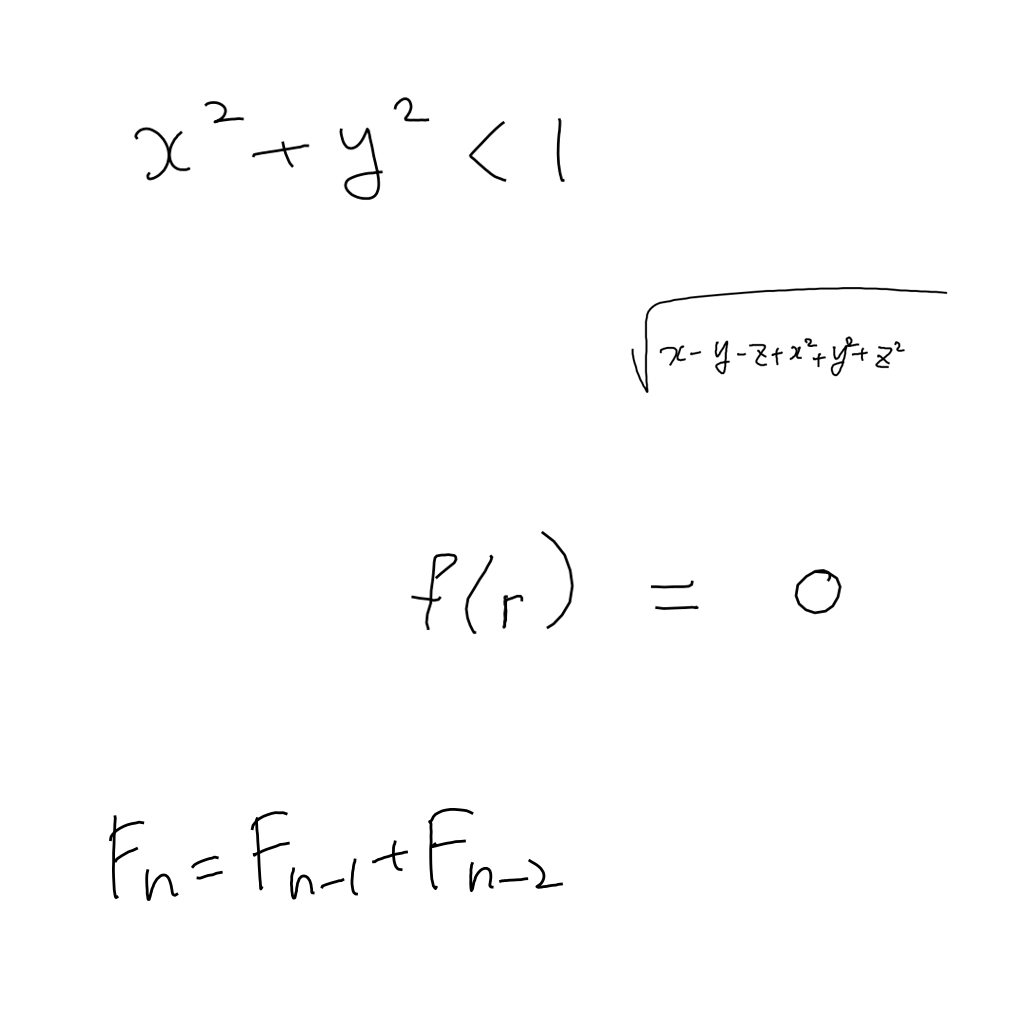 x² + y² < 1
√(x - y - z + x² + y² + z²)
f(r) = 0
Fₙ = Fₙ₋₁ + Fₙ₋₂